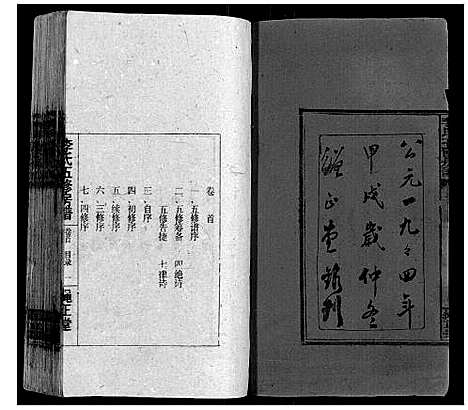 公元一九九四年
甲戌岁仲冬
绳正堂敬刊
卷首
一．五修谱序
二．五修筹备　四绝诗
五修告捷　七律诗
三．自序
四．初修序
五．续修序
六．三修序
七．四修序
李氏五修宗谱　卷首　目录　绳正堂